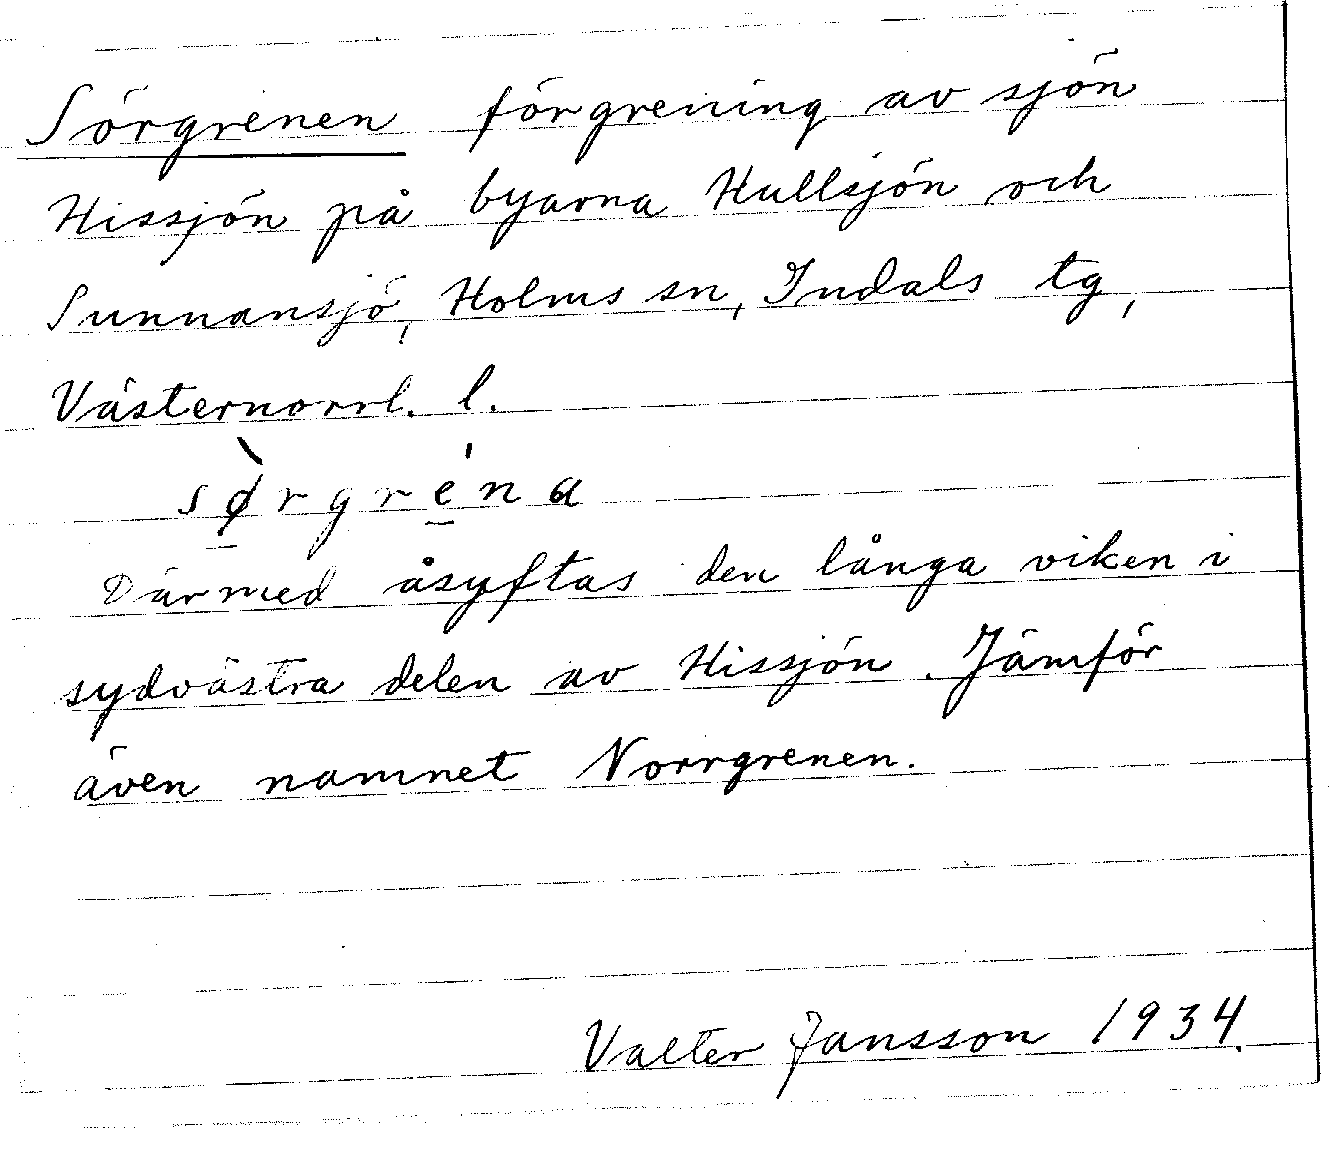 Sörgrenen förgrening av sjön
Hissjön på byarna Hullsjön och
Sunnansjö, Holms sn, Indals tg,
Västernorrl. l.
sø̱̀rgré̱na
Därmed åsyftas den långa viken i
sydvästra delen av Hissjön. Jämför
även namnet Norrgrenen.
Valter Jansson 1934.